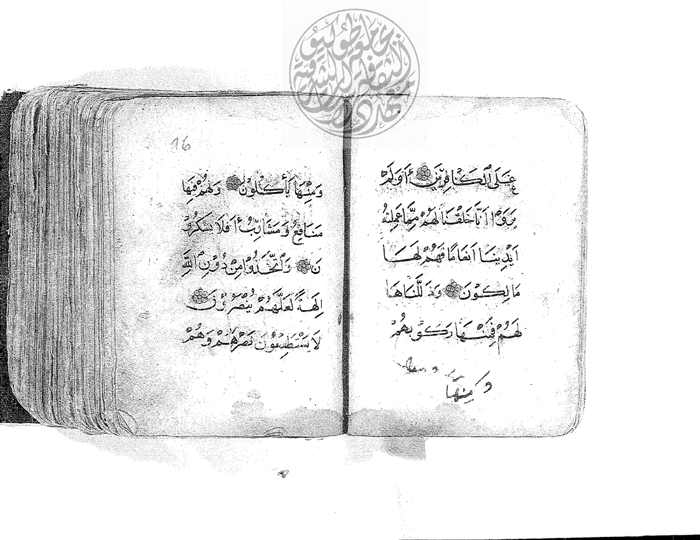 عَلَى الْكَافِرِينَ أَوَلَمْ
يَرَوْا أَنَّا خَلَقْنَا لَهُمْ مِمَّا عَمِلَتْ
أَيْدِينَا أَنْعَامًا فَهُمْ لَهَا
مَالِكُونَ وَذَلَّلْنَاهَا
لَهُمْ فَمِنْهَا رَكُوبُهُمْ
ومنها
16
وَمِنْهَا يَأْكُلُونَ وَلَهُمْ فِيهَا
مَنَافِعُ وَمَشَارِبُ أَفَلَا يَشْكُرُو
نَ وَاتَّخَذُوا مِنْ دُونِ اللَّهِ
آلِهَةً لَعَلَّهُمْ يُنْصَرُونَ
لَا يَسْتَطِيعُونَ نَصْرَهُمْ وَهُمْ